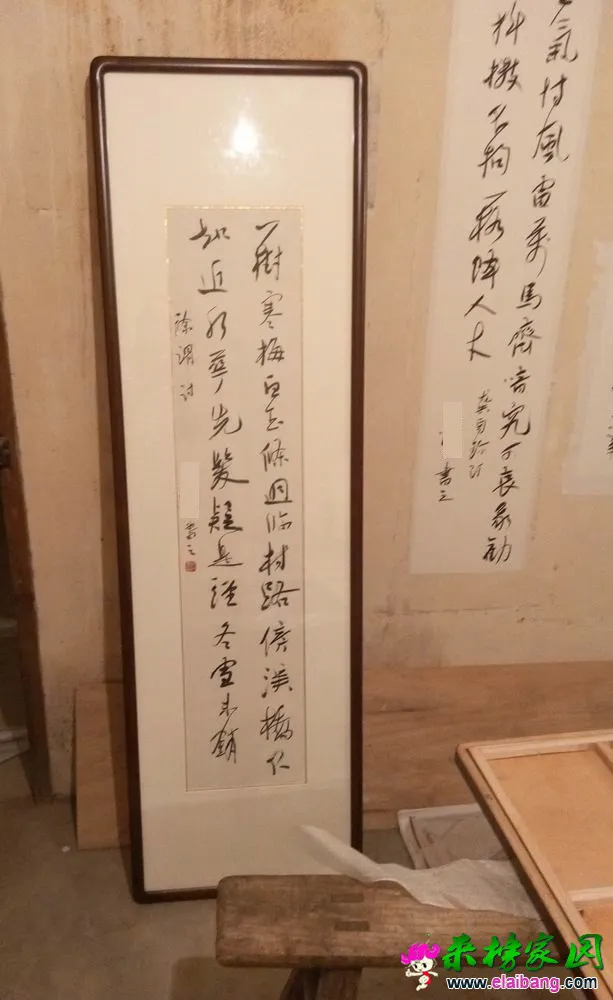 氣恃風雷萬馬齊喑究可哀我勸
抖擻不拘一格降人才
龔自珍詩
書之
一樹寒梅白玉條迥臨村路傍溪橋不
知近水華先發疑是經冬雪未銷
謂詩
書之
来榜家园
www.elaibang.com